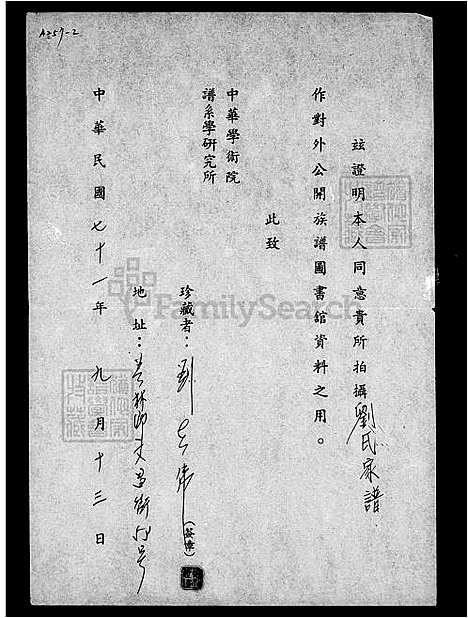 A257-2
茲證明本人同意貴所拍攝劉氏家譜
作對外公開族譜圖書館資料之用。
此致
中華學術院
譜系學研究所
珍藏者：劉
(簽章)
地址：
中華民國七十一年九月十三日
FamilySearch